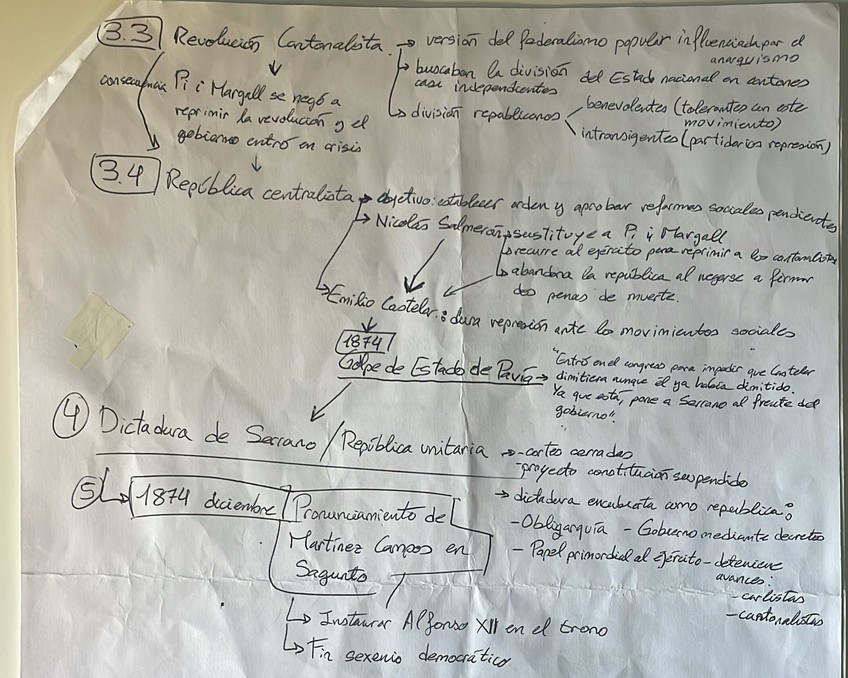 3.3 Revolución Cantonalista → versión del federalismo popular influenciada por el
anarquismo
→ buscaban la división del Estado nacional en cantones
casi independientes
→ división republicanos
benevolentes (tolerantes con este
movimiento)
intransigentes (partidarios represión)
consecuencia
Pi i Margall se negó a
reprimir la revolución y el
gobierno entró en crisis
3.4 República centralista → objetivo: establecer orden y aprobar reformas sociales pendientes
→ Nicolás Salmerón → sustituye a Pi i Margall
→ recurre al ejército para reprimir a los cantonalistas
→ abandona la república al negarse a firmar
dos penas de muerte.
→ Emilio Castelar: dura represión ante lo movimientos sociales
1874
Golpe de Estado de Pavía →
"Entró en el congreso para impedir que Castelar
dimitiera aunque él ya había dimitido.
Ya que está, pone a Serrano al frente del
gobierno".
4 Dictadura de Serrano / República unitaria → - cortes cerradas
- proyecto constitución suspendido
→ dictadura encubierta como republica:
- Obligarquía - Gobierno mediante decretos
- Papel primordial al ejército - detenieve
avances:
- carlistas
- cantonalistas
5 → 1874 diciembre Pronunciamiento de
Martínez Campos en
Sagunto
→ Instaurar Alfonso XII en el trono
→ Fin sexenio democrático